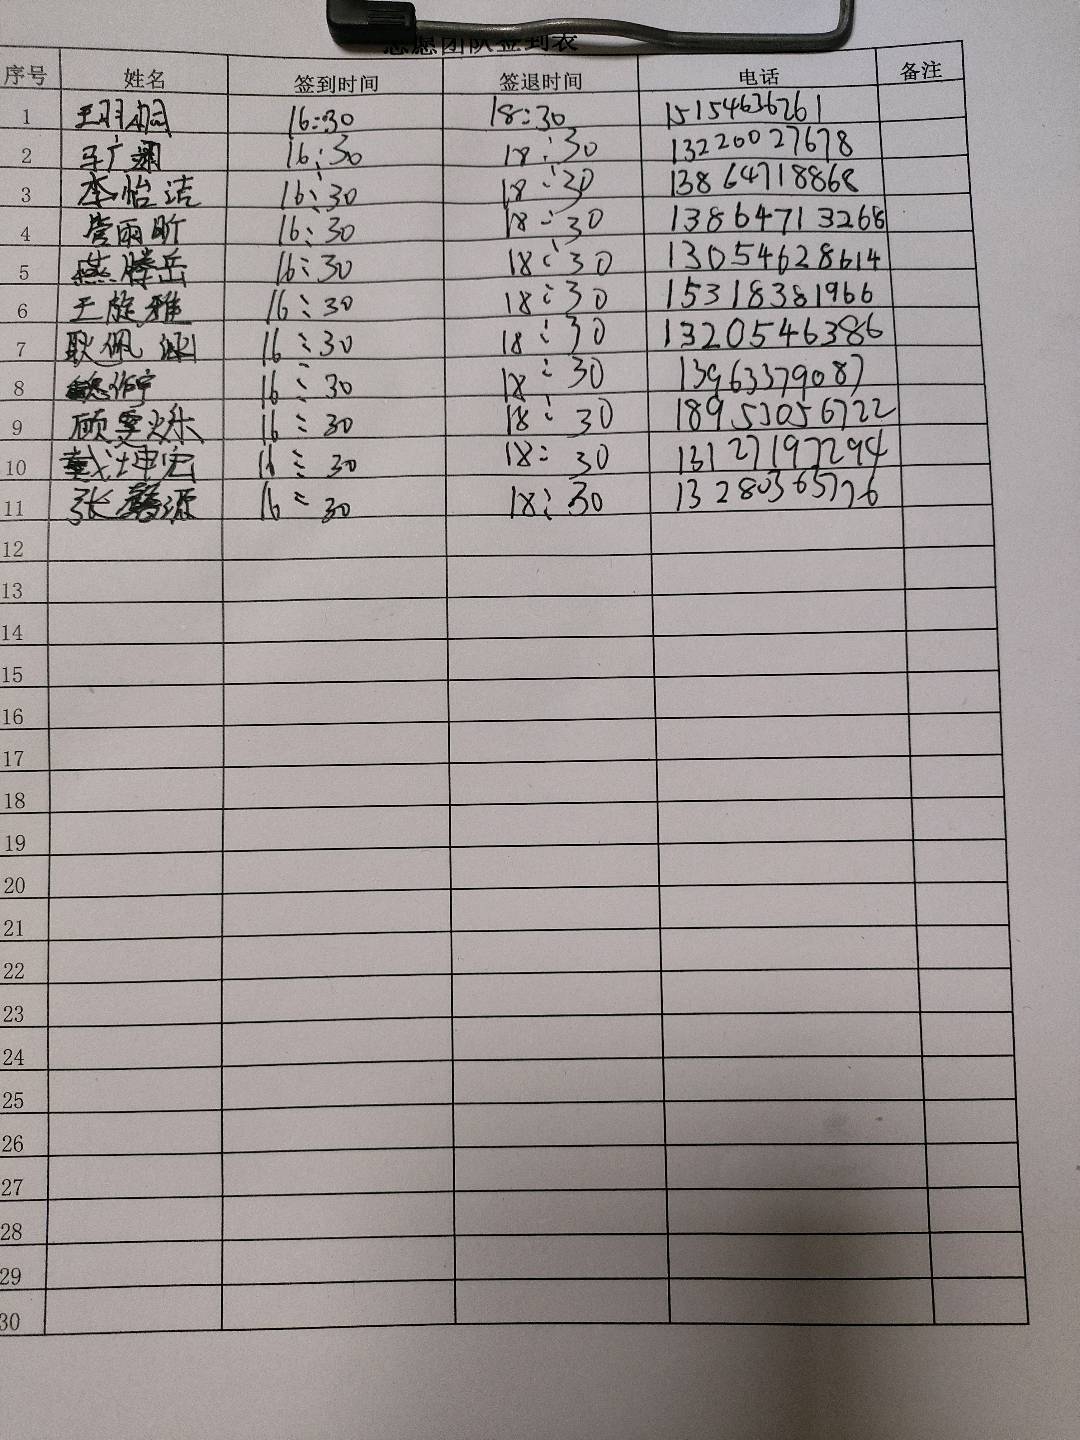 志愿团队签到表
序号 姓名 签到时间 签退时间 电话 备注
1 16:30 18:30 15154636261
2 16:30 18:30 13220027678
3 李怡洁 16:30 18:30 13864718868
4 管雨昕 16:30 18:30 13864713268
5 燕腾岳 16:30 18:30 13054628614
6 王旋雅 16:30 18:30 15318381966
7 耿佩 16:30 18:30 1320546386
8 16:30 18:30 13963379087
9 顾雯烁 16:30 18:30 18953056722
10 戴坤宏 16:30 18:30 13127197294
11 张馨源 16:30 18:30 13280365776
12
13
14
15
16
17
18
19
20
21
22
23
24
25
26
27
28
29
30